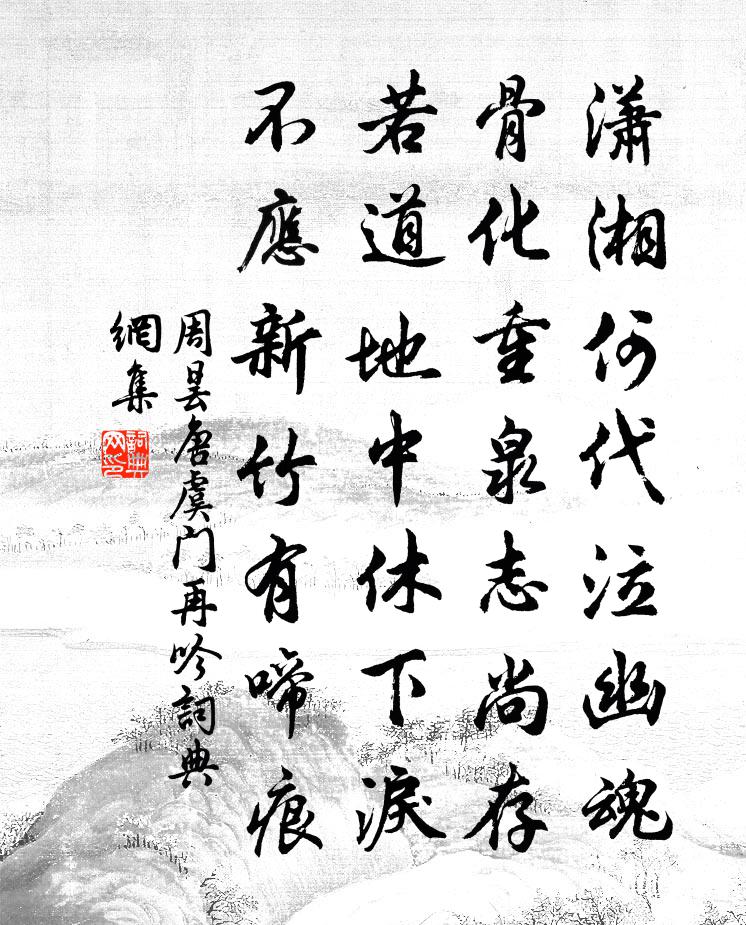 瀟湘何代泣幽魂
骨化重泉志尚存
若道地中休下淚
不應新竹有啼痕
周曇唐虞門再吟詞典
網集
詞典網印